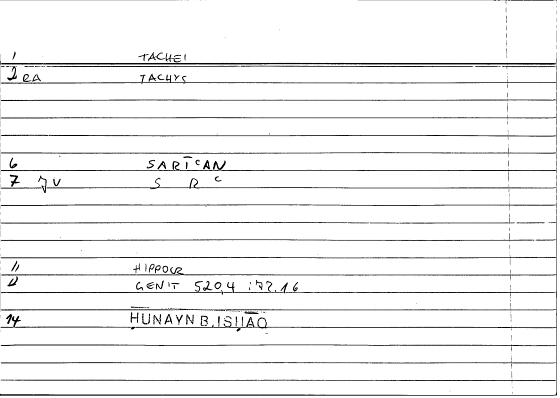 1 TACHEI
2 ea TACHYS
6 SARĪCAN
7 S R C
11 HIPPOCR
GENIT 520,4 :72.16
14 ḤUNAYN B. ISḤĀQ